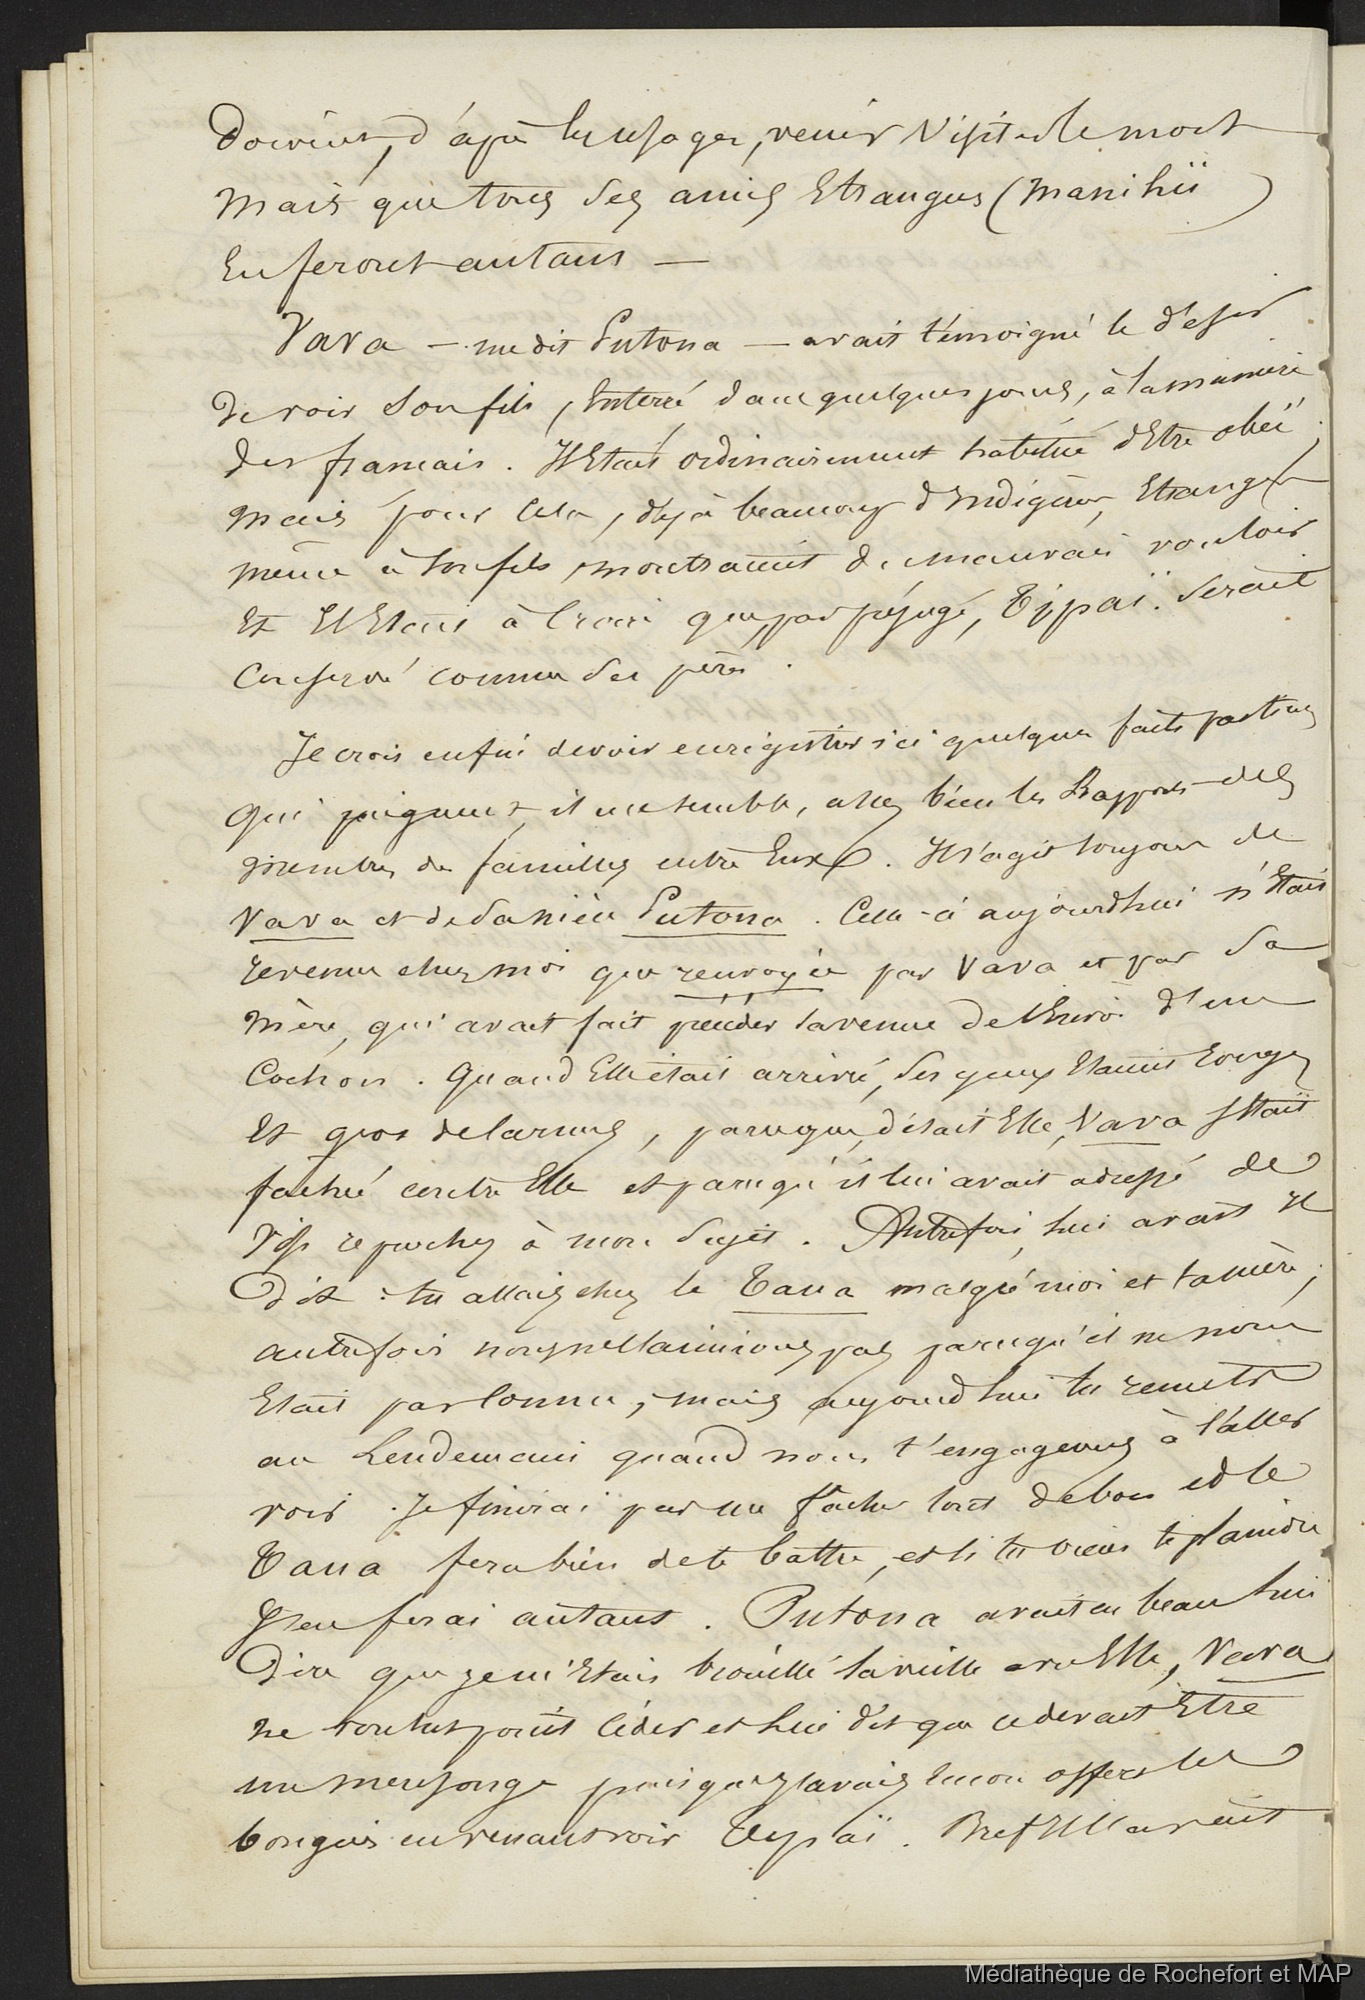 doivent, d'après les usages, venir visiter le mort
mais que tous ses amis Etrangers (manihii)
en feront autant —
Vava — me dit Putona — avait témoigné le désir
de voir son fils, Enterré dans quelques jours, à la manière
des français. Il Etait ordinairement habitué d'Etre obéi,
mais pour cela, déjà beaucoup d'Indigènes, Etrangers
même à son fils, montraient du mauvais vouloir
Et Il Etait à Croire que, par préjugé, Tipaï. serait
Conservé comme ses pères.
Je crois enfin devoir enregistrer ici quelques faits
qui peignent, il me semble, assez bien les Rapports des
membres de familles entre Eux. Il s'agit toujours de
Vava et de sa nièce Putona. Celle-ci aujourd'hui n'Etait
revenue chez moi que renvoyée par Vava et par sa
mère, qui avait fait la venue de l'Envoi d'un
Cochon. Quand Elle était arrivée, ses yeux Etaient rouges
Et gros de larmes, parceque, disait Elle, Vava s'Etait
fâché contre Elle et parcequ'il lui avait adressé de
vifs reproches à mon sujet. Autrefois, lui avait Il
dit : tu allais chez le Taua malgré moi et ta mère,
autrefois nous ne l'aimions pas parcequ'il ne nous
Etait pas connu, mais aujourd'hui tu remets
au Lendemain quand nous t'engageons à l'aller
voir. Je finirai par me fâcher tout de bon et le
Taua fera bien de te battre, et si tu viens te plaindre
J'en ferai autant. Putona avait eu beau lui
Dire que je m'Etais brouillé la veille avec Elle, Vava
ne voulut point céder et lui dit que ce devait Etre
un mensonge puisque j'avais Encore offert les
bougies en venant voir Tipaï. Bref Il l'avait
Médiathèque de Rochefort et MAP